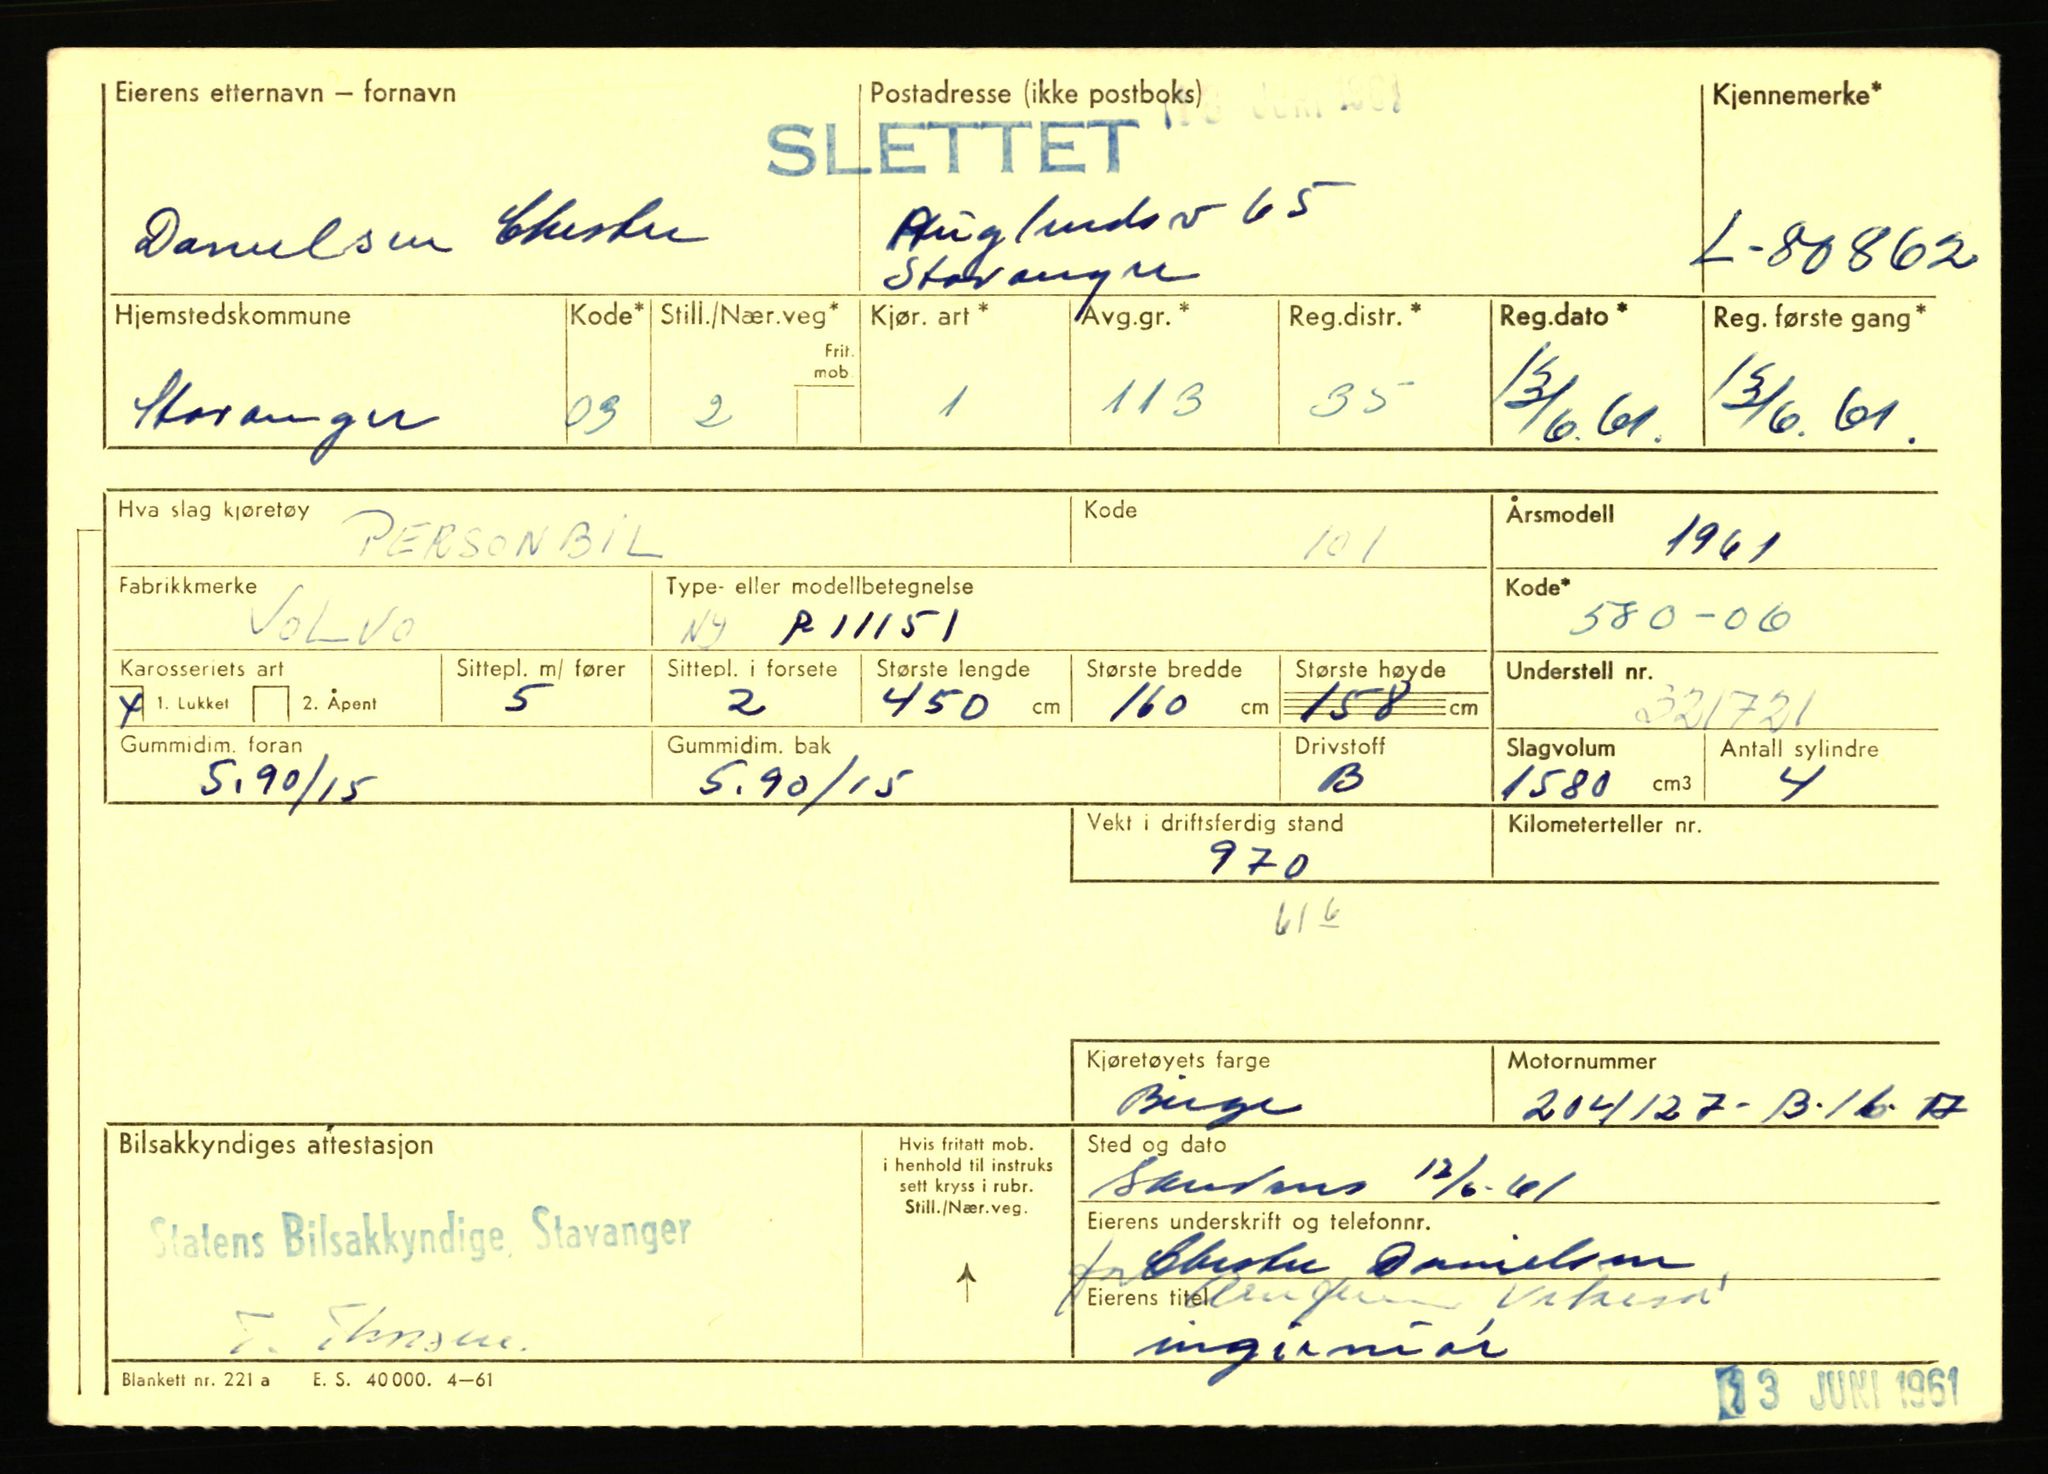 Eierens etternavn – fornavn
Postadresse (ikke postboks)
Kjennemerke*
JUNI 1961
SLETTET
Danielsen Chester
65
Stavanger
L-80862
Hjemstedskommune
Kode*
Still./Nær.veg*
Frit. mob.
Kjør. art*
Avg.gr.*
Reg.distr.*
Reg.dato*
Reg. første gang*
Stavanger
03
2
1
113
35
13/6. 61.
13/6. 61.
Hva slag kjøretøy
PERSONBIL
Kode
101
Årsmodell
1961
Fabrikkmerke
VOLVO
Type- eller modellbetegnelse
NY P 11151
Kode*
580-06
Karosseriets art
X 1. Lukket 2. Åpent
Sittepl. m/ fører
5
Sittepl. i forsete
2
Største lengde
450 cm
Største bredde
160 cm
Største høyde
158 cm
Understell nr.
321721
Gummidim. foran
5.90/15
Gummidim. bak
5.90/15
Drivstoff
B
Slagvolum
1580 cm3
Antall sylindre
4
Vekt i driftsferdig stand
970
Kilometerteller nr.
61 6
Kjøretøyets farge
Beige
Motornummer
204127-B.16.
Bilsakkyndiges attestasjon
Statens Bilsakkyndige, Stavanger
Hvis fritatt mob.
i henhold til instruks
sett kryss i rubr.
Still./Nær.veg.
Sted og dato
Sandnes 12/6-61
Eierens underskrift og telefonnr.
for Chester Danielsen
Eierens titel
ingeniør
Blankett nr. 221 a E. S. 40 000. 4—61
13 JUNI 1961